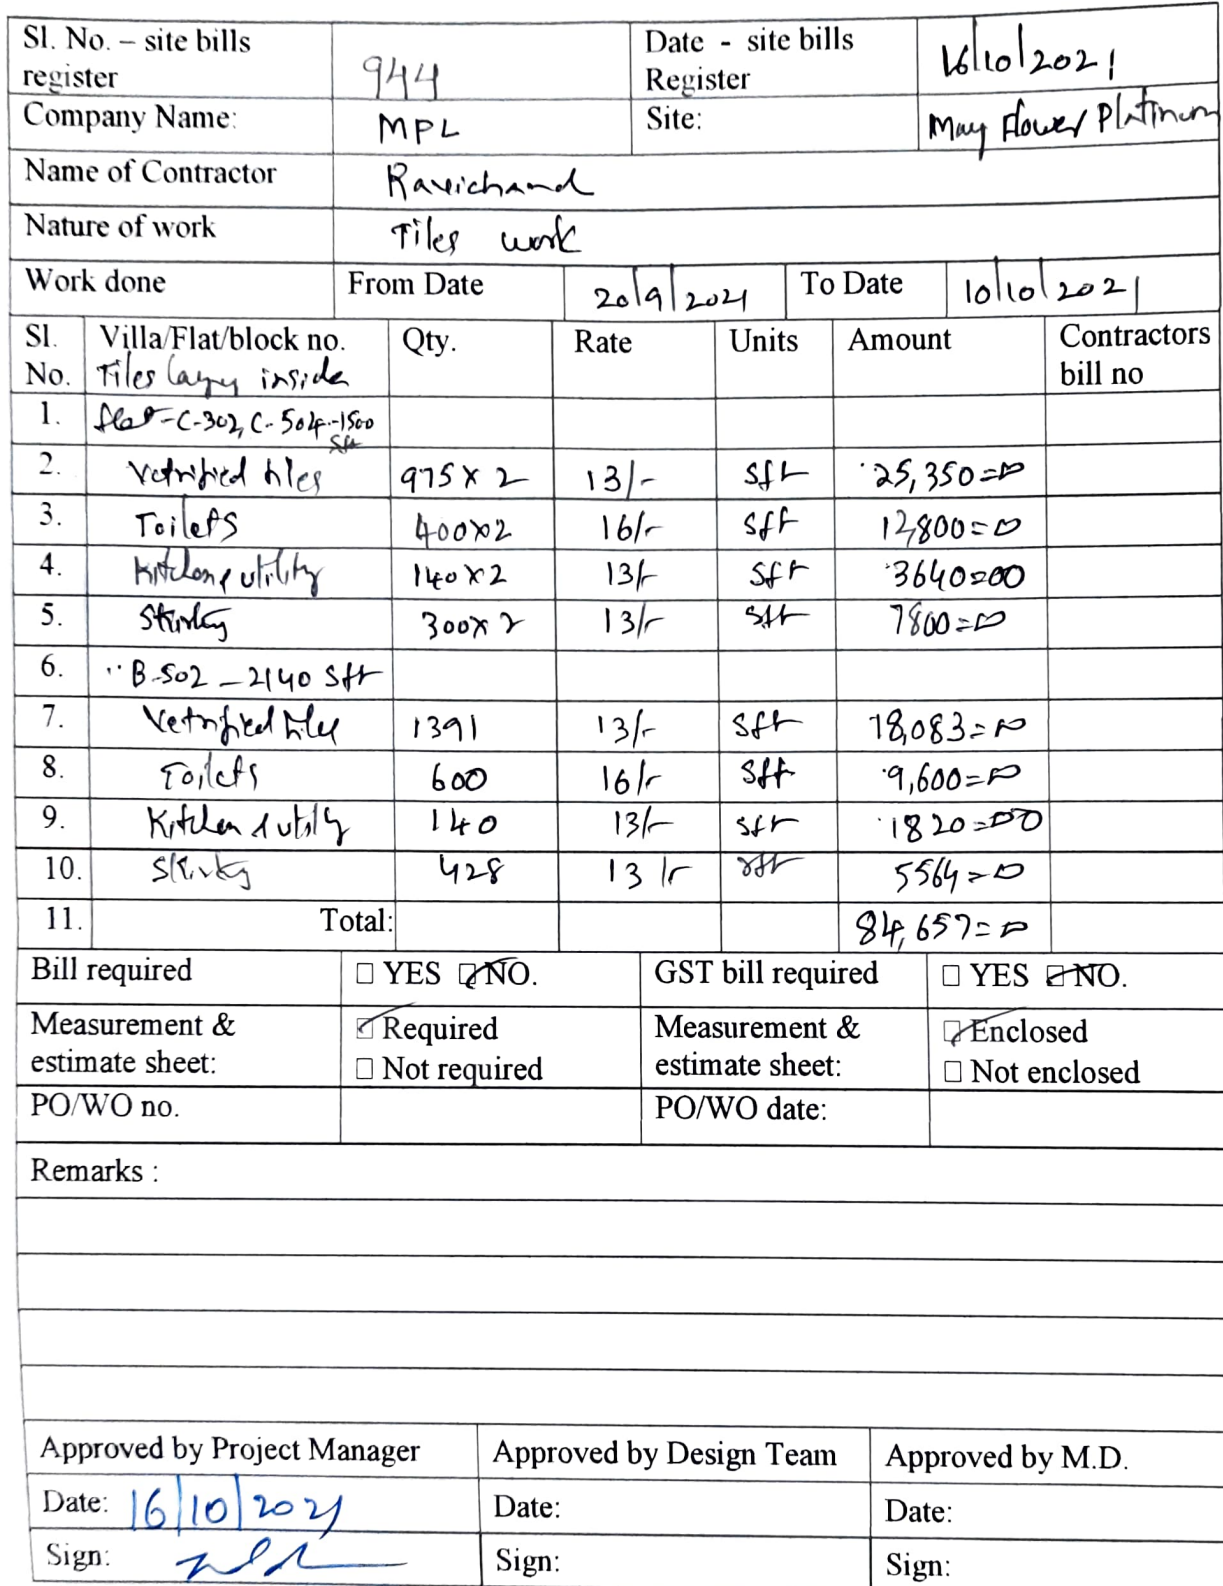 Sl. No. – site bills register 944 Date - site bills Register 16/10/2021
Company Name: MPL Site: May Flower Platinum
Name of Contractor Ravichand
Nature of work Tiles work
Work done From Date 20/9/2021 To Date 10/10/2021
Sl. No. Villa/Flat/block no. Qty. Rate Units Amount Contractors bill no
Tiles inside
1. flat-C-302, C-504-1500 Sft
2. Vetrified tiles 975 x 2 13/- Sft 25,350=00
3. Toilets 400x2 16/- Sft 12,800=00
4. Kitchen & utility 140x2 13/- Sft 3640=00
5. 300x2 13/- Sft 7800=00
6. " B-502 – 2140 Sft
7. Vetrified tiles 1391 13/- Sft 18,083=00
8. Toilets 600 16/- Sft 9,600=00
9. Kitchen & utility 140 13/- Sft 1820=00
10. 428 13/- 5564=00
11. Total: 84,657=00
Bill required □ YES ☑ NO. GST bill required □ YES ☑ NO.
Measurement & estimate sheet: ☑ Required □ Not required Measurement & estimate sheet: ☑ Enclosed □ Not enclosed
PO/WO no. PO/WO date:
Remarks :
Approved by Project Manager Approved by Design Team Approved by M.D.
Date: 16/10/2021 Date: Date:
Sign: Sign: Sign: